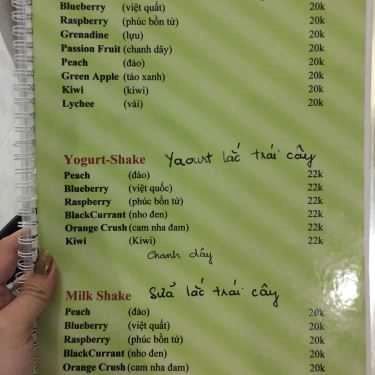 Blueberry (việt quất) 20k
Raspberry (phúc bồn tử) 20k
Grenadine (lựu) 20k
Passion Fruit (chanh dây) 20k
Peach (đào) 20k
Green Apple (táo xanh) 20k
Kiwi (kiwi) 20k
Lychee (vải) 20k
Yogurt-Shake Yaourt lắc trái cây
Peach (đào) 22k
Blueberry (việt quốc) 22k
Raspberry (phúc bồn tử) 22k
BlackCurrant (nho đen) 22k
Orange Crush (cam nha đam) 22k
Kiwi (Kiwi) 22k
chanh dây
Milk Shake Sửa lắc trái cây
Peach (đào) 20k
Blueberry (việt quất) 20k
Raspberry (phúc bồn tử) 20k
BlackCurrant (nho đen) 20k
Orange Crush (cam nha đam) 20k